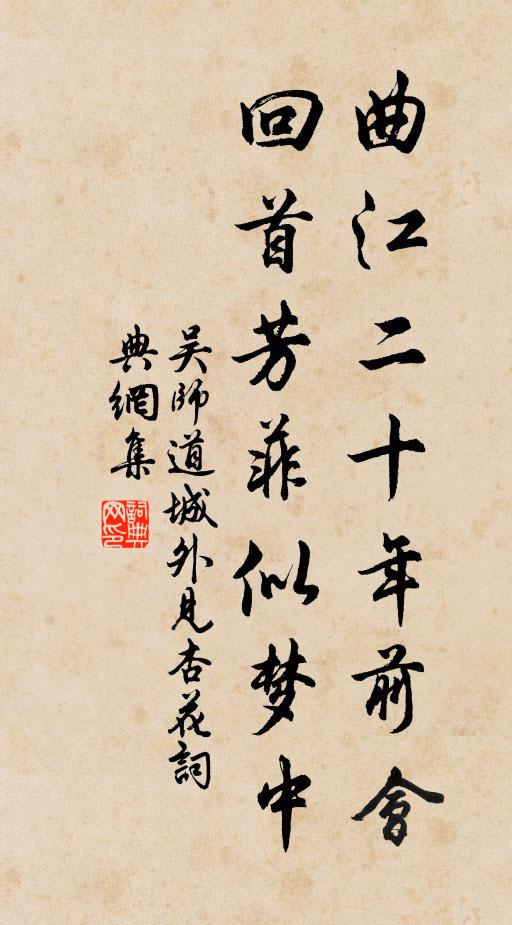 曲江二十年前會
回首芳菲似梦中
吴師道城外見杏花詞
典網集
詞典网印